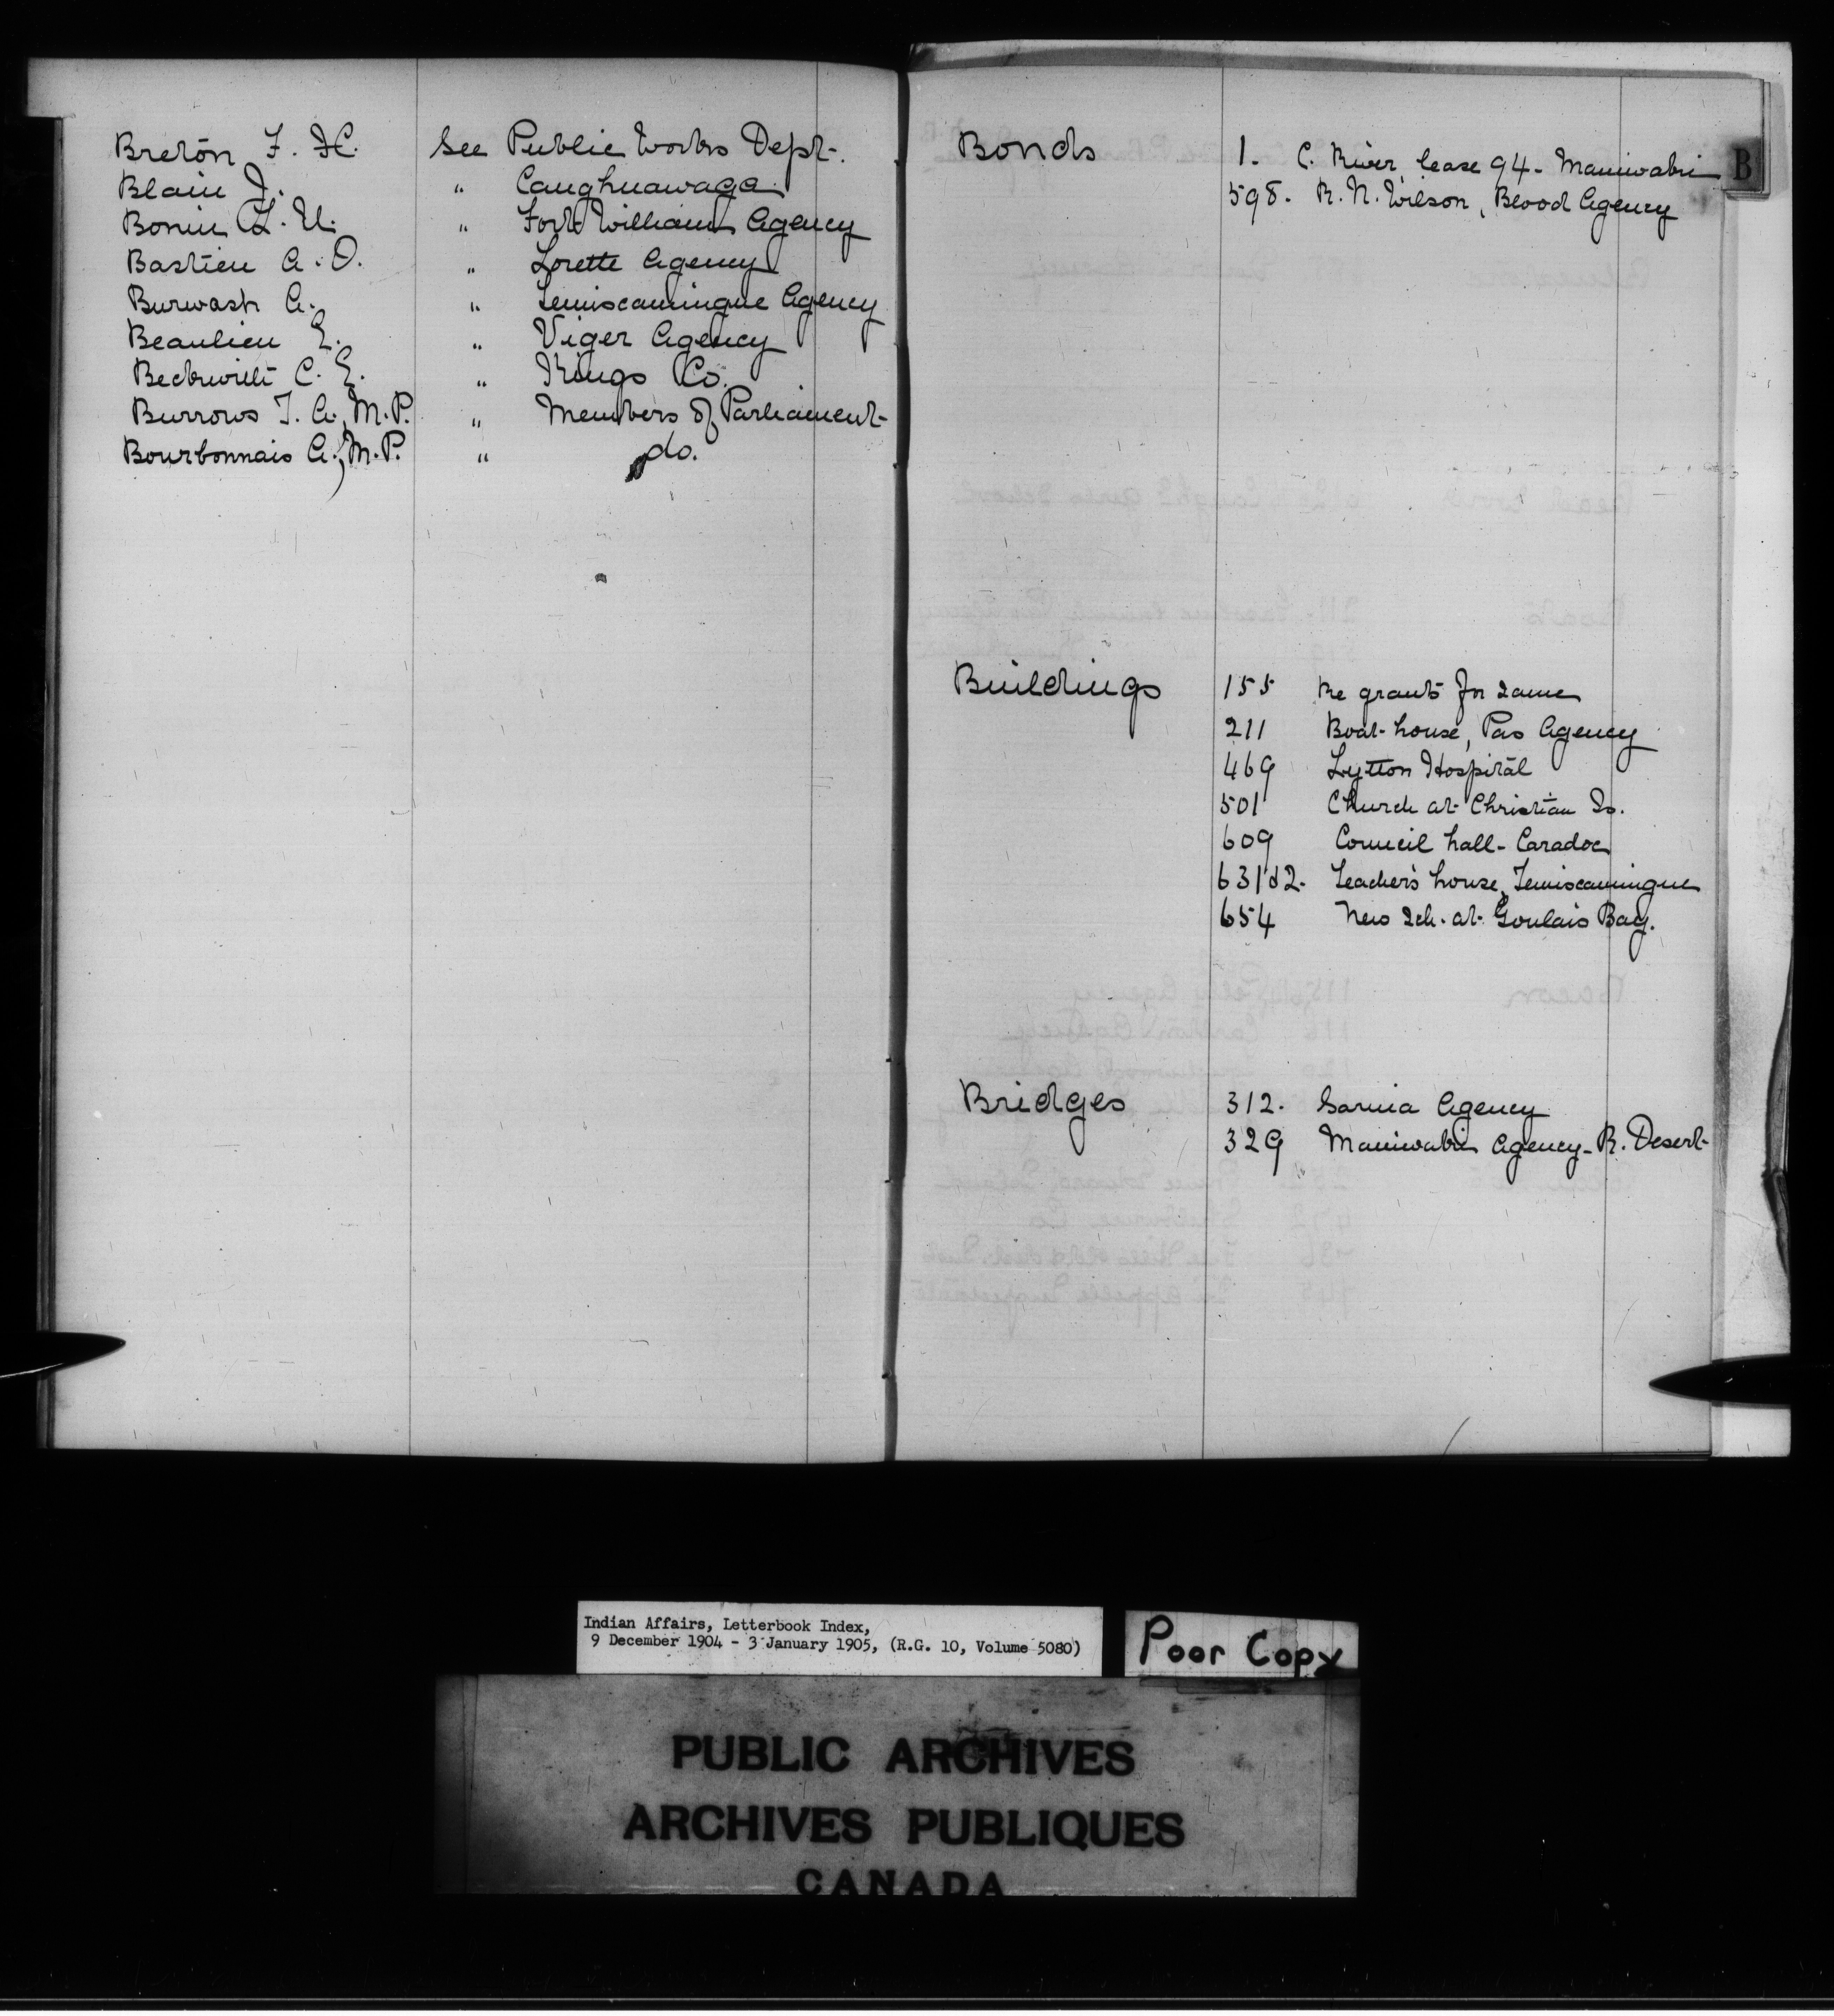 Breton F. H. See Public Works Dept.
Blain J. " Caughnawaga
Bonin L. U. " Fort William Agency
Bastien A. O. " Lorette Agency
Burwash A. " Temiscamingue Agency
Beaulieu E. " Viger Agency
Beckwith C. E. " Kings Co.
Burrows T. A., M.P. " Members of Parliament
Bourbonnais A., M.P. " do.
Bonds 1. C. River, lease 94 - Maniwaki
598. R. N. Wilson, Blood Agency
B
Buildings 155 Re grants for same
211 Boat-house, Pas Agency
469 Lytton Hospital
501 Church at Christian Is.
609 Council hall - Caradoc
631&2. Teacher's house, Temiscamingue
654 New sch. at Goulais Bay.
Bridges 312. Sarnia Agency
329 Maniwaki Agency - R. Desert
Indian Affairs, Letterbook Index,
9 December 1904 - 3 January 1905, (R.G. 10, Volume 5080)
Poor Copy
PUBLIC ARCHIVES
ARCHIVES PUBLIQUES
CANADA